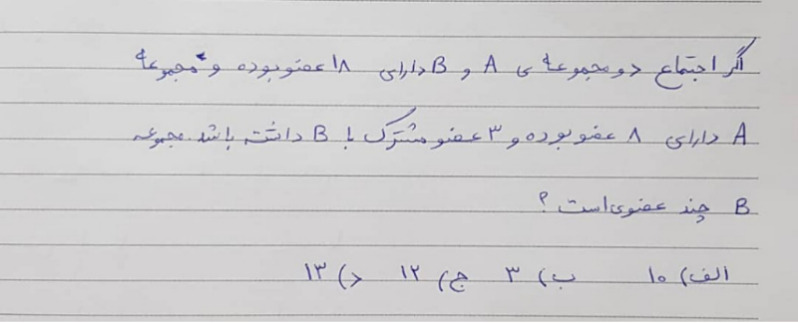 اگر اجتماع دو مجموعه ی A و B دارای ۱۸ عضو بوده و مجموعه
A دارای ۸ عضو بوده و ۳ عضو مشترک با B داشته باشد مجموعه
B چند عضوی است ؟
الف) ۱۰ ب) ۳ ج) ۱۲ د) ۱۳